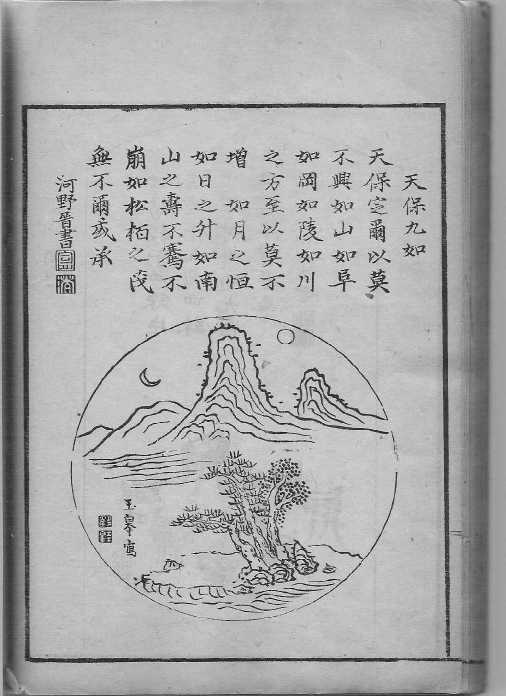 天保九如
天保定爾以莫
不興如山如阜
如岡如陵如川
之方至以莫不
增 如月之恒
如日之升如南
山之壽不騫不
崩如松柏之茂
無不爾或承
河野晉書
玉峯寫